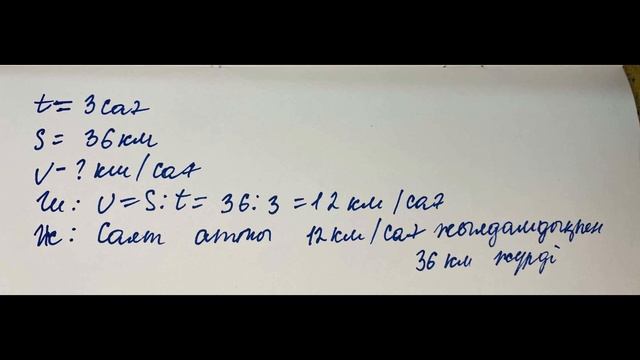 t= 3 сағ
S= 36 км
v-? км/сағ
Ш: v=S:t= 36:3 =12 км/сағ
Ж: Салт атты 12 км/сағ жылдамдықпен
36 км жүрді